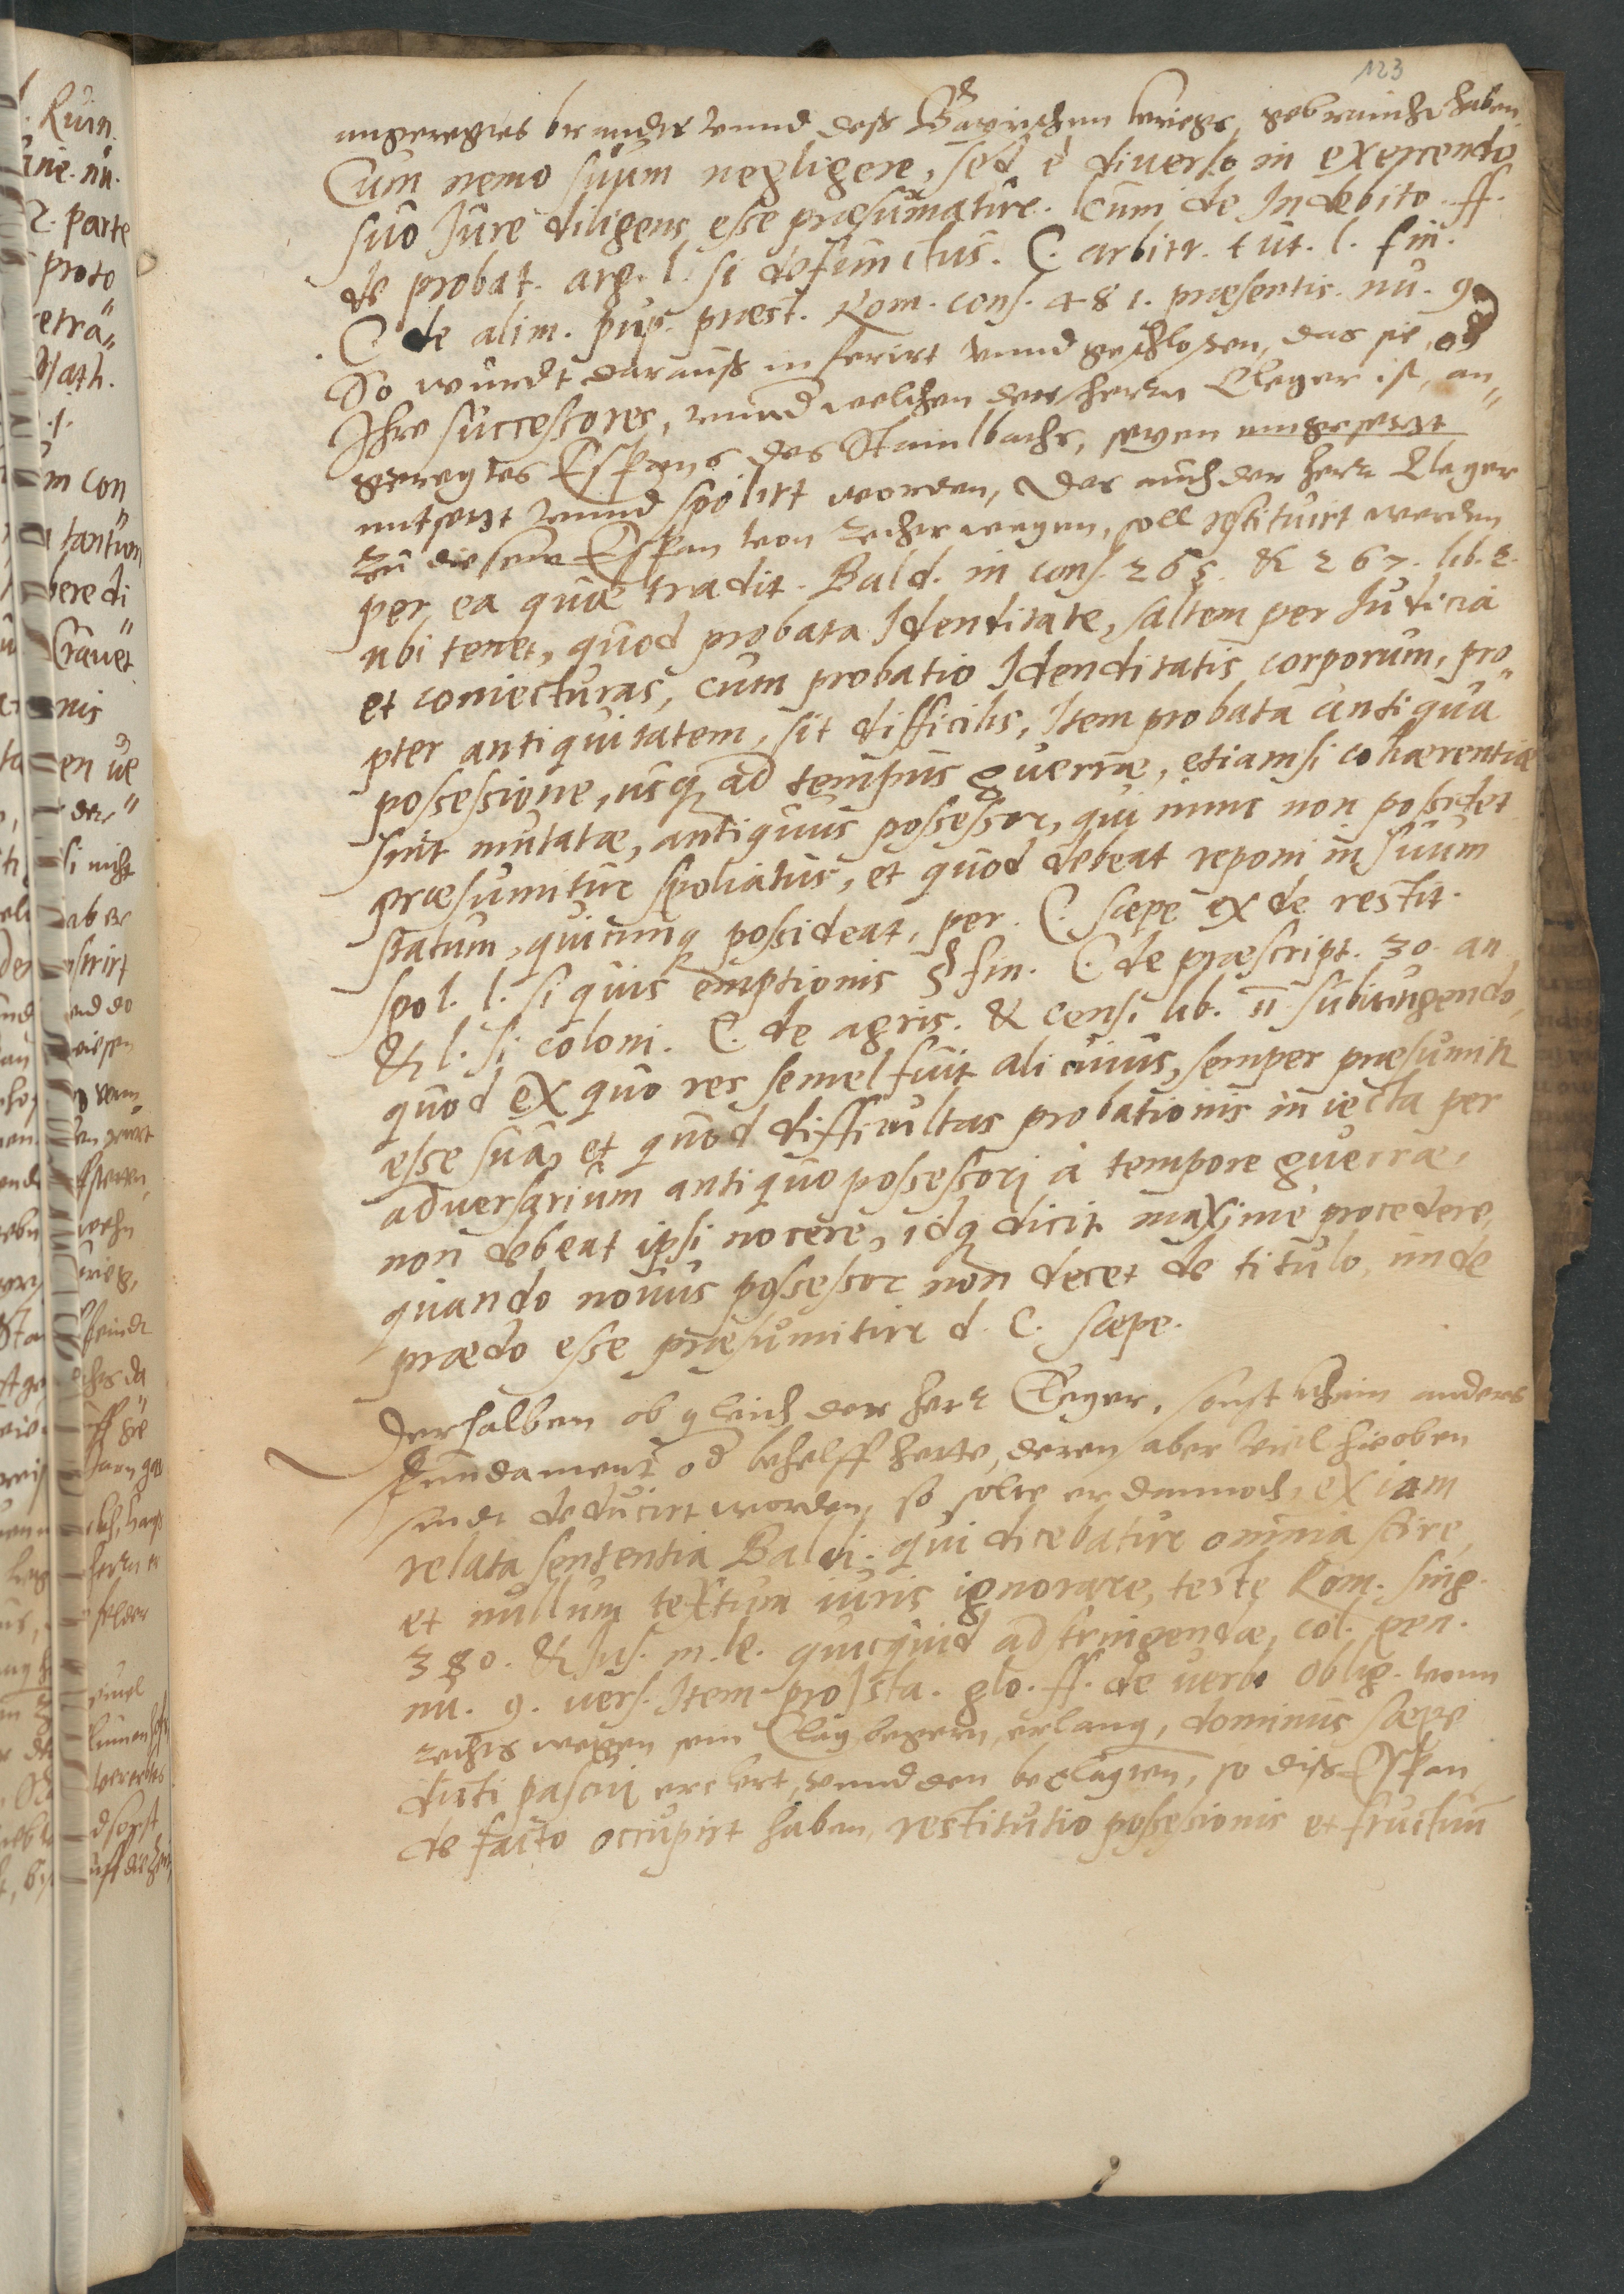 123
angeregtes brandts vnnd deß Bayrischen kriegs, gebraucht haben.
Cum nemo suum negligere, sed è diuerso in exercendo
suo Jure diligens esse præsumatur. l. cum de Indebito. ff.
de probat. arg. l. si defunctus. C. arbitr. tut. l. fin.
C de alim. pup. præst. Rom. cons. 481. præsentis. nu. 9.
So wurdt darauß inferirt vnnd geschlossen, das sie, od
Ihre successores, vnnd welchen der herr Cleger ist, an"
geregtes Espans des Stainbachs, seyen eingesetzt
entsetzt vnnd spolirt worden, Das auch der herr Cleger
zu diesem Espan von rechts wegen, soll restituirt werden
per ea quæ tradit. Bald. in cons. 265. & 267. lib. 2.
ubi tenet, quod probata Idenditate, saltem per Iudicia
et coniecturas, cum probatio Idenditatis corporum, pro"
pter antiquitatem, sit difficilis, Item probata antiqua
possessione, usq ad tempus guerræ, etiamsi cohærentiæ
sint mutatæ, antiquus possessor, qui nunc non possidet
præsumitur spoliatus, et quod debeat reponi in suum
statum, quicunq possideat, per. C. sæpe ex de restit.
spol. l. si quis emptionis § fin. C. de præscript. 30. an
& l. si coloni. C. de agric. & cens. lib. 11 subiungendo,
quod ex quo res semel fuit alicuius, semper præsumitr
esse sua, et quod difficultas probationis iniecta per
adversarium antiquo possessori à tempore guerræ,
non debeat ipsi nocere, idq dicit maximè procedere,
quando nouus possessor non docet de titulo, unde
prædo esse præsumitur d. C. sæpe.
Derhalben ob gleich der herr Cleger, sonst kein anders
fundament od behelff hette, deren aber viel hieoben
sindt deducirt worden, so solte er dannoch, ex iam
relata sententia Baldi. qui dicebatur omnia scire,
et nullum textum iuris ignorare, teste Rom. sing.
380. & Jas. in. l. quicquid adstringendæ, col. pen.
nu. 9. vers. Item pro Ista. glo. ff. de verb oblig. vonn
rechts wegen sein Clag begern, erlang, dominus sæpe
dicti pascui erclert, vnnd den beclagten, so diß Espan
de facto occupirt haben, restitutio possessionis et fructuum